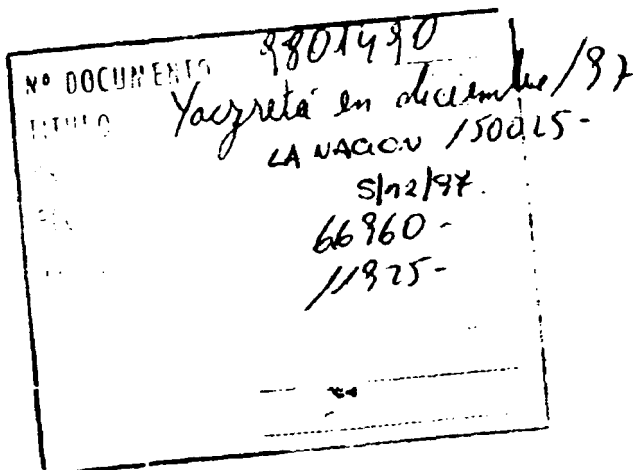 Nº DOCUMENTO 9801490
TITULO Yacyretá en diciembre/97
LA NACION /50025-
5/12/97.
66960-
11925-